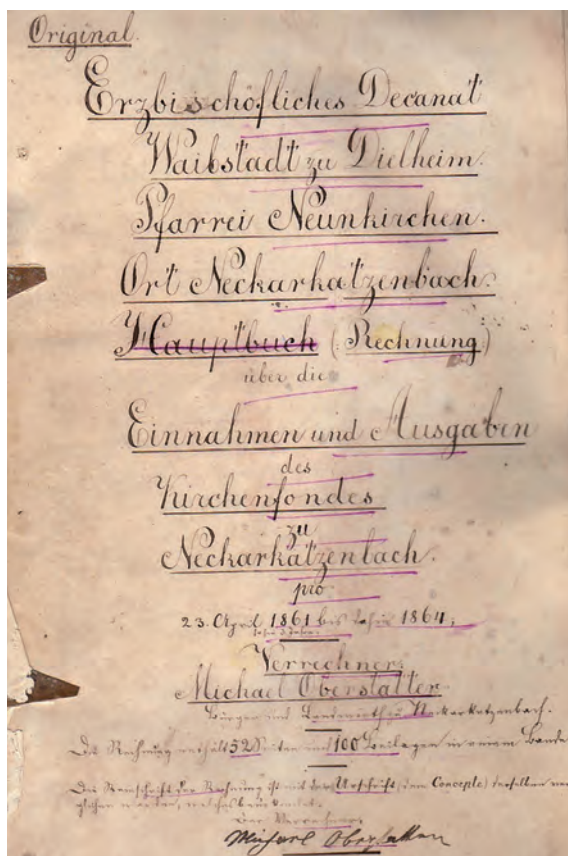 Original.
Erzbischöfliches Decanat
Waibstadt zu Dielheim.
Pfarrei Neunkirchen.
Ort Neckarkatzenbach.
Hauptbuch (: Rechnung :)
über die
Einnahmen und Ausgaben
des
Kirchenfondes
zu
Neckarkatzenbach.
pro
23. April 1861 bis dahin 1864,
Verrechner:
Michael Oberstatter
Bürger und Landwirth zu Neckarkatzenbach.
Die Rechnung enthält 52 Seiten und 100 Beilagen in einem Bande
Die Reinschrift der Rechnung ist mit der Urschrift (dem Concepte) derselben ver-
glichen worden, welches beurkundet.
Der Verrechner:
Michael